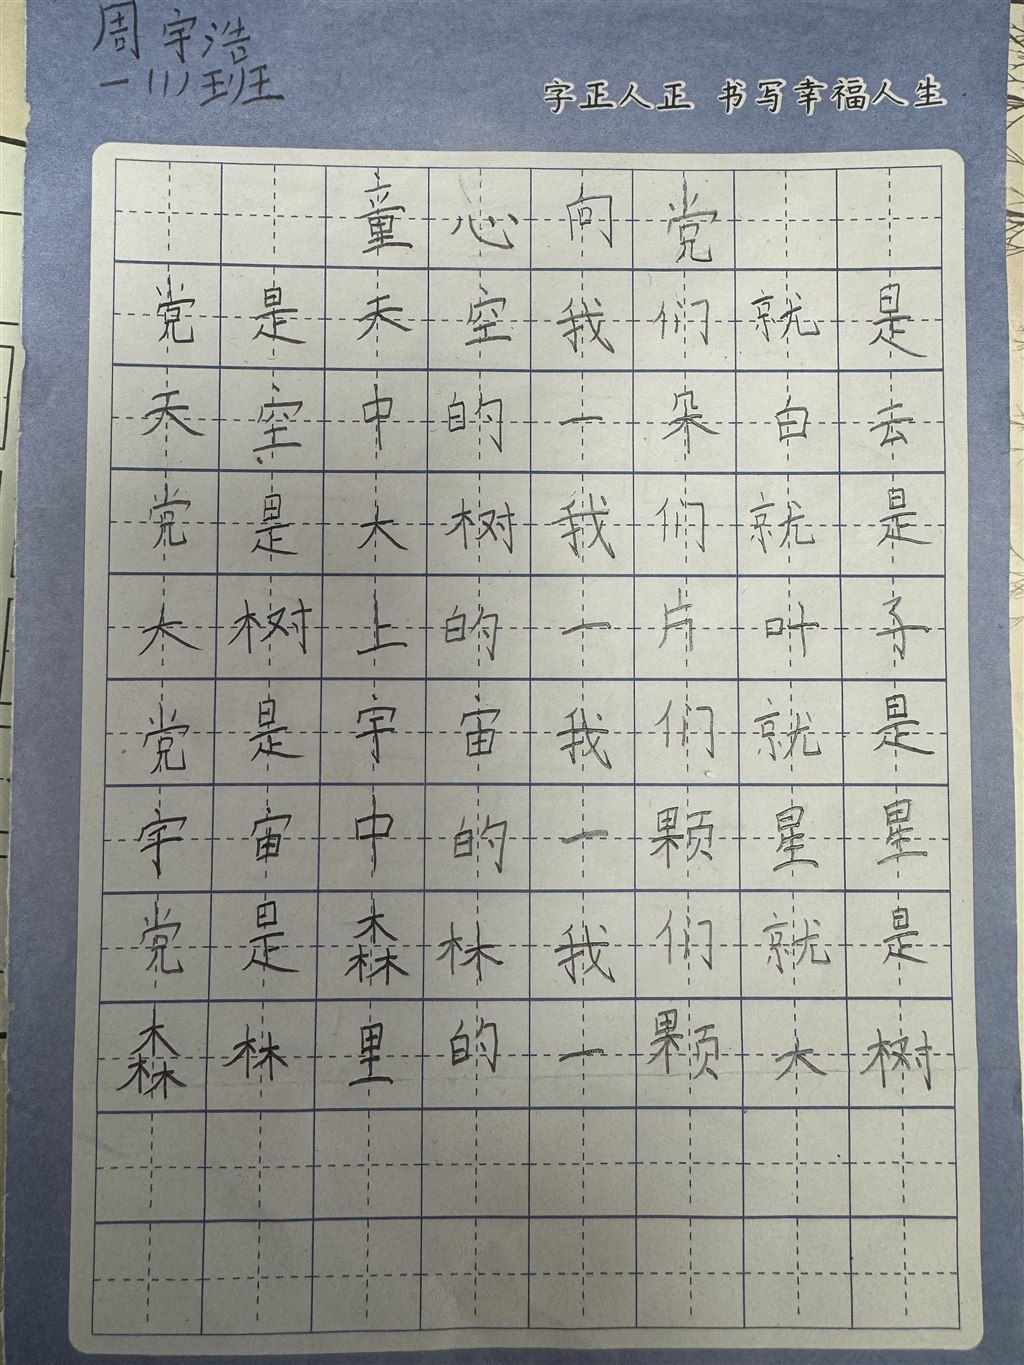 周宇浩
一(1)班
字正人正 书写幸福人生
童心向党
党是天空我们就是
天空中的一朵白去
党是大树我们就是
大树上的一片叶子
党是宇宙我们就是
宇宙中的一颗星星
党是森林我们就是
森林里的一颗大树